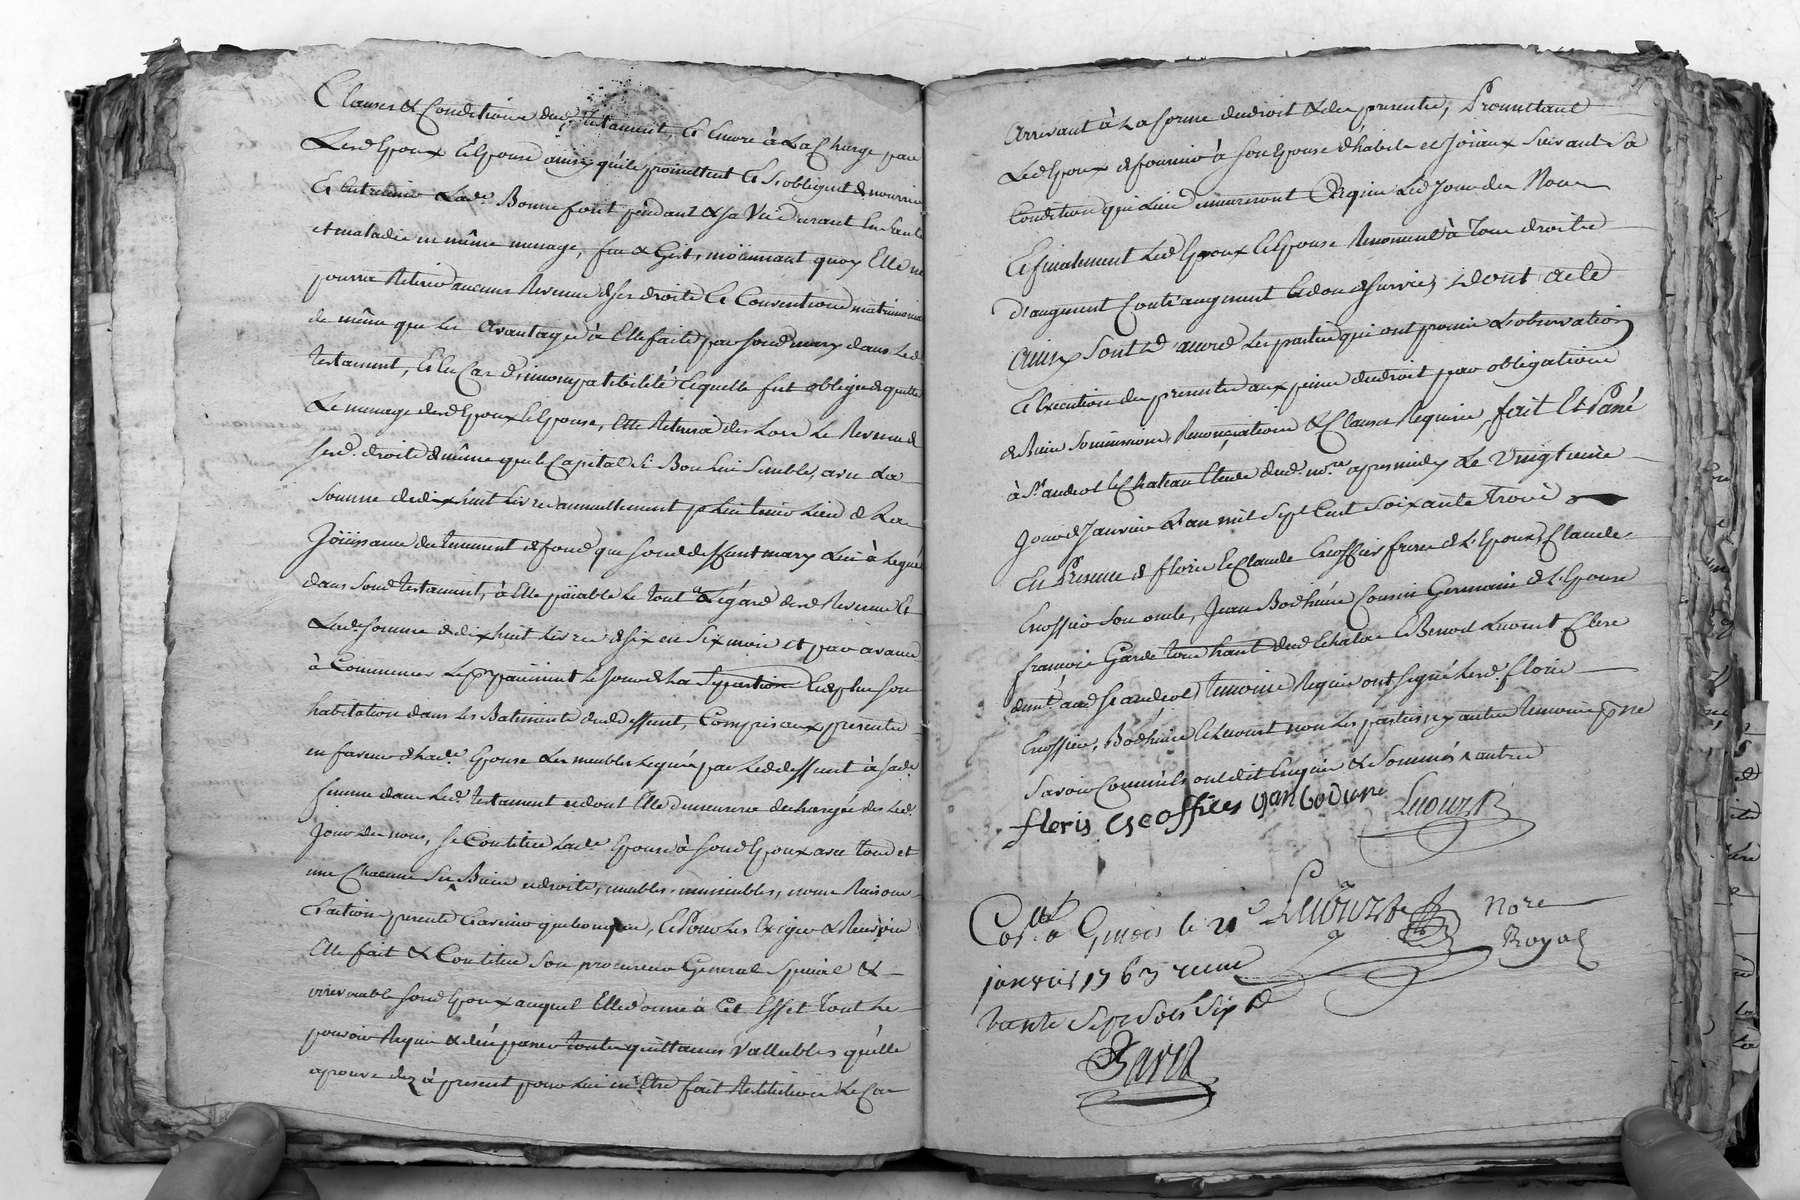 Clauses et Conditions dud. testament, Et Encore à La Charge par
Lesd Epoux et Epouse ainsy qu'ils promettent et s'obligent de nourrir
Et Entretenir Lad. Bonnefont pendant sa Vie durant En Santé
et maladie en même menage, feu et Git, moiennant quoy Elle ne
pourra Retirer aucuns Revenus de ses droits Et Conventions matrimoniales
de même que les avantages à Elle faits par son d mary dans Led
testament, Et En Cas d'incompatibilité Et quelle fut obligée de quitter
Le menage desd Epoux et Epouse, Elle Retirera des Lors Le Revenu de
sesd. droits de même que le Capital si Bon Lui Semble, avec La
Somme de dix huit Livres annuellement p Lui tenir Lieu de La
Joüissance du tenement de fond que son d deffunt mary Lui à Legué
dans Sond testament, à Elle païable Le tout à L'égard desd Revenus Et
Lad. somme de dix huit Livres de six en Six mois et par avance
à Commencer Le pr païement Le jour de La Separation Et de plus son
habitation dans Les Batiments dud deffunt, Compris aux presentes
en faveur de Lad. Epouse Les meubles Legués par Led deffunt à sad.
femme dans Led. testament et dont Elle demeurera dechargée dès Led.
Jour des noces, se Constitue Lad. Epouse à Son d Epoux avec tous et
un Chacuns Ses Biens et droits, meubles, immeubles, noms Raisons
Et actions presents Et avenir quelconques, Et Pour Les Exiger et Recevoir
Elle fait et Constitue Son procureur General Special et
irrevocable Sond Epoux auquel Elle donne à Cet Effet Tout Le
pouvoir Requis et d'en passer toutes quittances Vallables qu'elle
aprouve dez à present pour Lui en Etre fait Restitution Le Cas
Arrivant à La forme du droit et des presentes, Promettant
Led Epoux de fournir à son Epouse d'habits et Joiaux Suivant Sa
Condition qui Lui demeureront acquis Led Jour des Noces
Et finalement Led Epoux Et Epouse Renoncent à Tous droits
D'augment Contr'augment Et don de Survie, dont acte
Ainsy Sont d'accord Les parties qui ont promis L'observation
Et Execution des presentes aux peines du droit par obligation
de Biens Soumissions, Renonciations et Clauses Requises, fait Et Passé
à St. andeol Le Chateau Etude dud. no.re apres midy Le Vingtieme
Jour de Janvier L'an mil Sept Cent Soixante Trois
En Presence de floris Et Claude Escoffier freres de L'Epoux, Claude
Escoffier Son oncle, Jean Bodhuire Cousin Germain de L'Epouse
françois Garde tous habt. dud Chatoa Et Benoit Luourt Clerc
demt. aud St andeol, temoins Requis ont signé Lesd. floris
Escoffier, Bodhuire et Luourt non Les parties ny autres temoins p ne
Savoir Comm'ils ont dit Enquis et Sommés et autres
floris escoffier Jan bodure Luourt
Co.lle
Cot.é à Givors le 21e nore
Royal
janvier 1763 reçu
vinte Sept Sols Six d